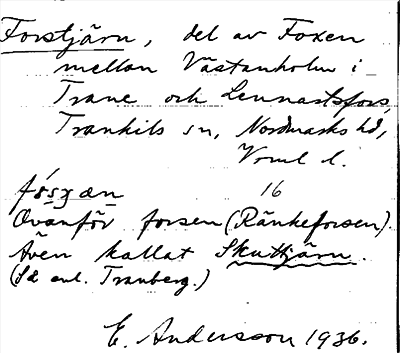 Forstjärn, del av Foxen
mellan Västanholm i
Trane och Lennartsfors,
Trankils sn, Nordmarks hd,
Vrml l.
16
Ovanför forsen (Ränkeforsen).
Även kallat Skuttjärn.
(Sd enl. Tranberg.)
E. Andersson 1936.